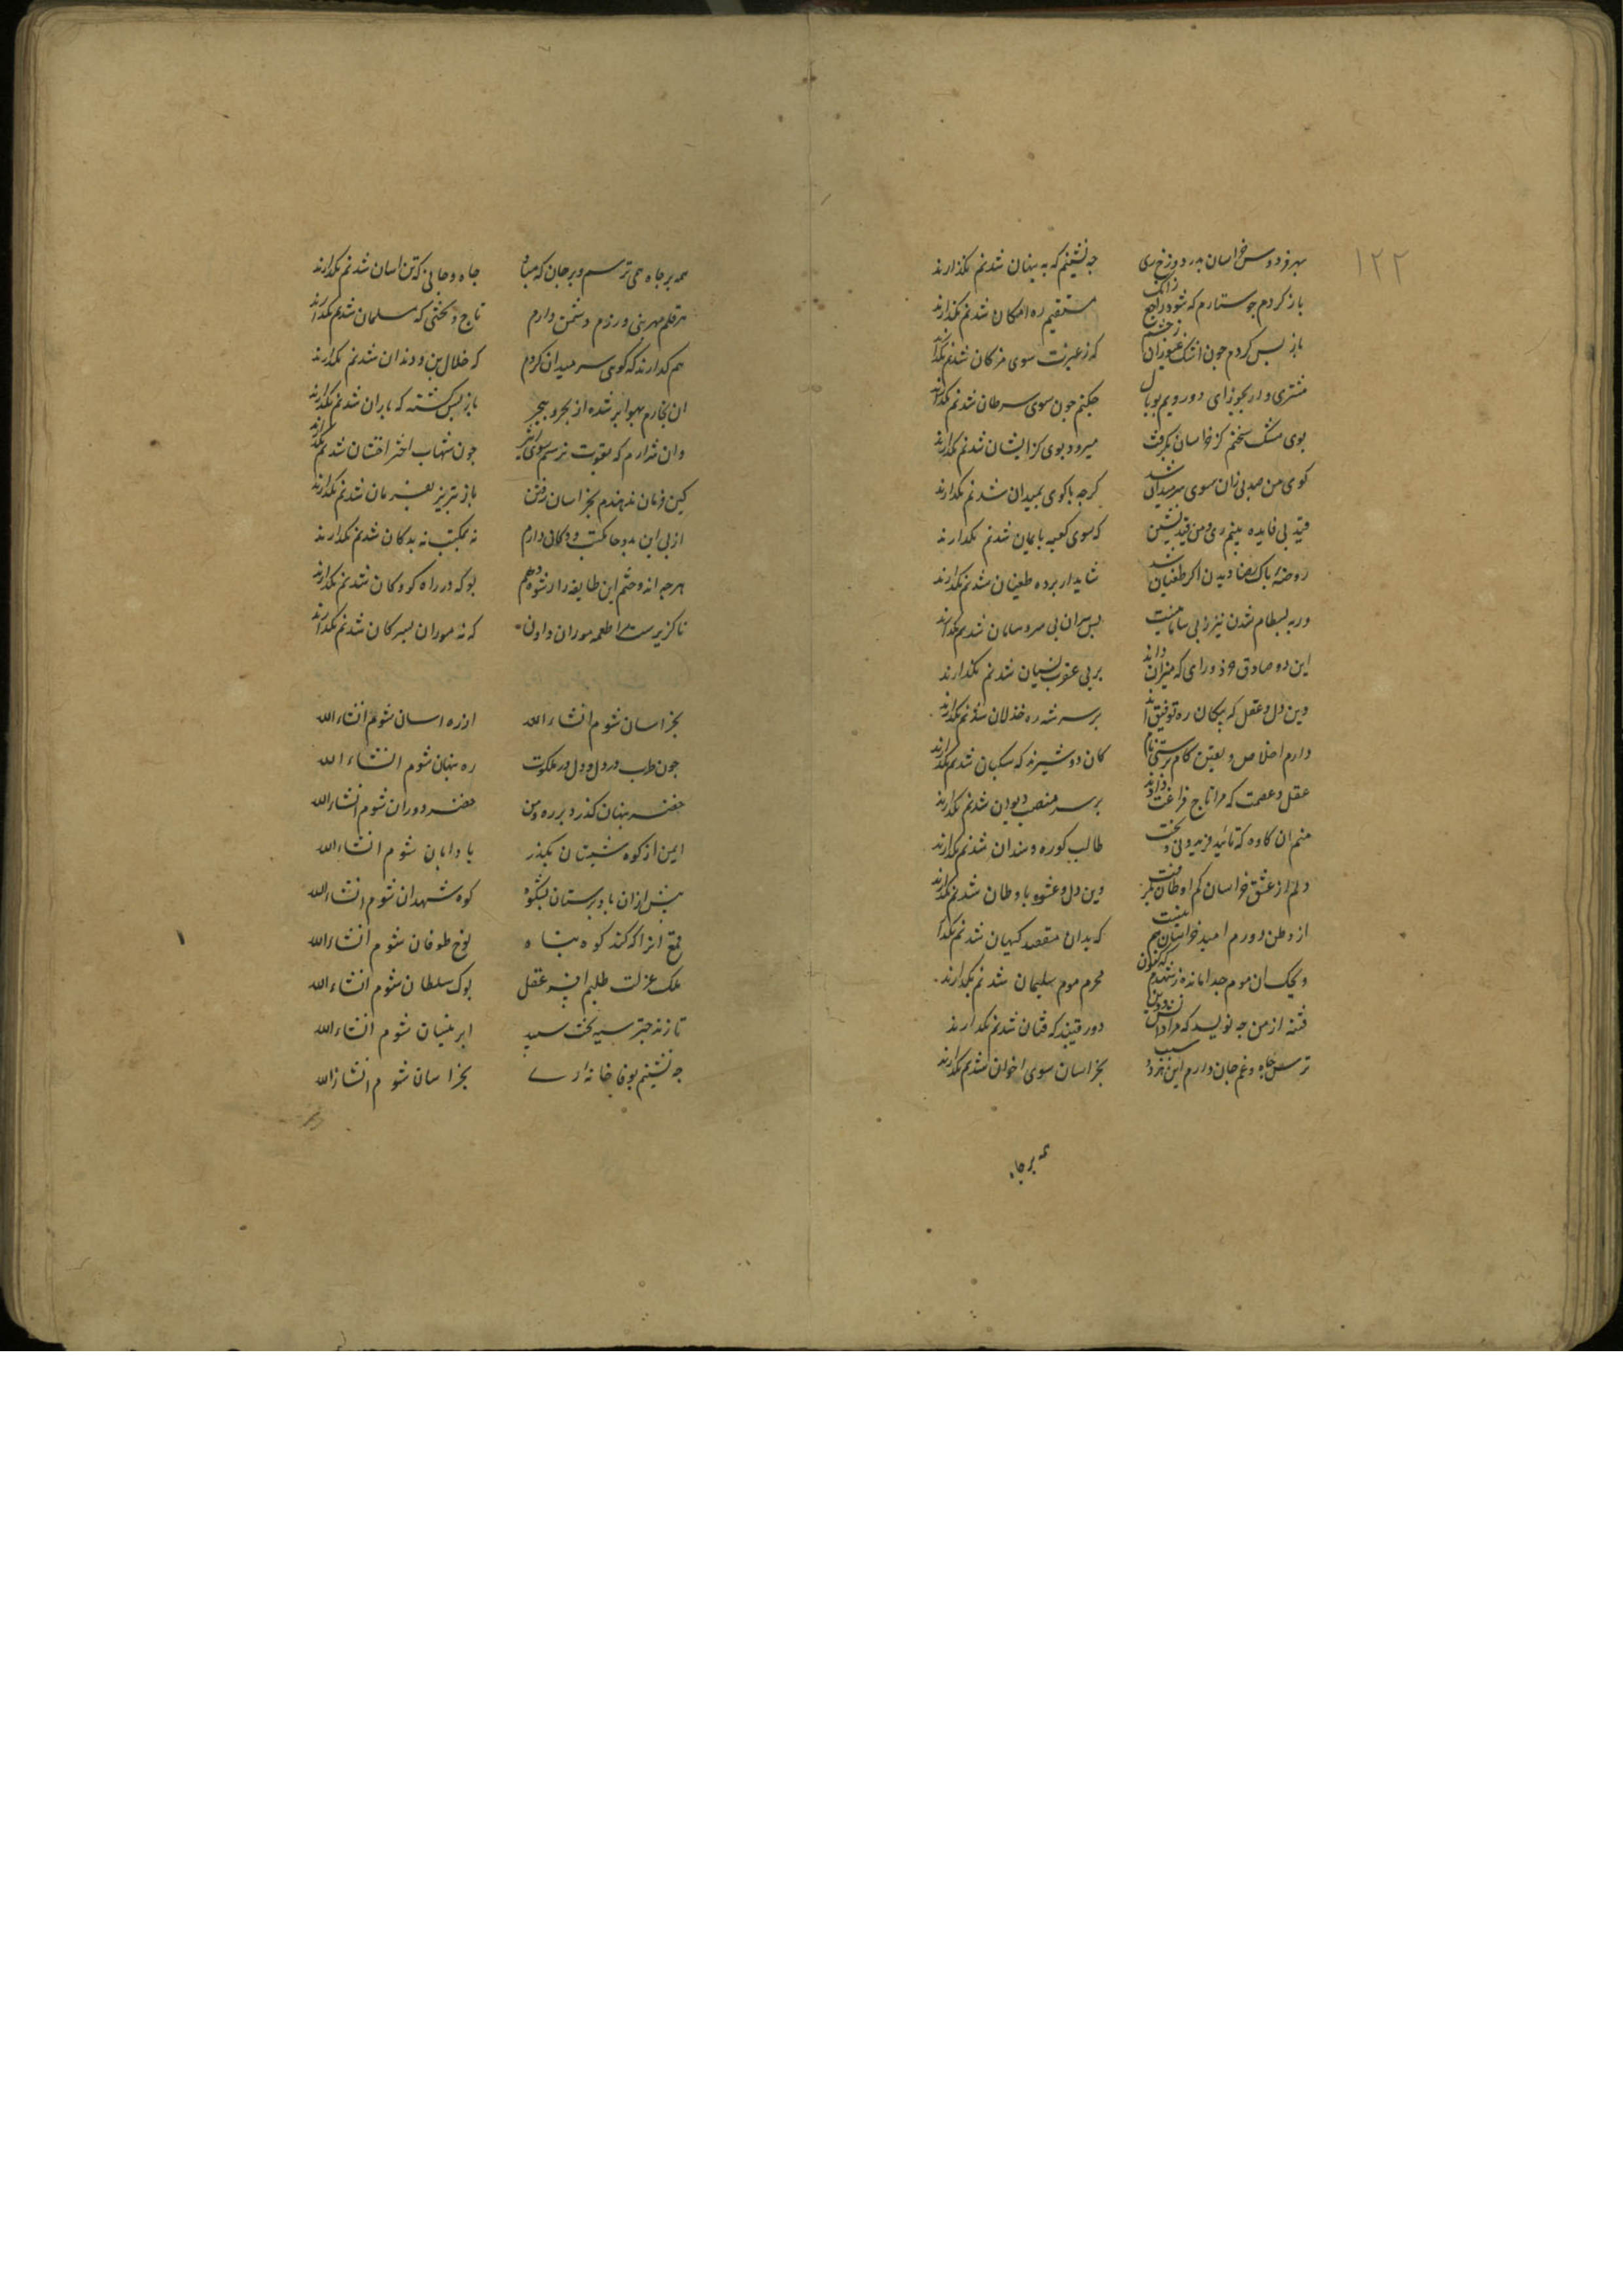 ۱۲۲
بهر فردوس خراسان بدر دوزخ ری جه نشینم که به پنهان شدنم نکذارند
باز کردم جو ستاره که شود راجع زانک مستقیم ره امکان شدنم نکذارند
باز بس کردم جون اشک غیوران از چشم که ز غیرت سوی مژکان شدنم نکذارند
مشتری وار بجوزای دو رویم بوبال جکنم جون سوی سرطان شدنم نکذارند
بوی مشک سخنم کز خراسان بکرفت میرود بوی کز ایشان شدنم نکذارند
کوی من صد بی زان سوی سر میدان شد کرجه با کوی بمیدان شدنم نکذارند
قید بی فایده بینم ری و من قید نشین که سوی کعبه بایمان شدنم نکذارند
روضه باک رضا دیدن اکر طغیان شد شاید ار بر ده طغیان شدنم نکذارند
ور به بسطام شدن نیز ز بی سامانیست بس سران بی سر و سامان شدنم نکذارند
این دو صادق خرد و رای که میزان دلند بر بی عقرب نیسان شدنم نکذارند
وین دل و عقل که بیکان ره توفیق اند بر سر شه ره خذلان شدنم نکذارند
دارم اخلاص و یقین کام برستی نا کان دو شیرند که سکبان شدنم نکذارند
عقل و عصمت که مرا تاج فراغت دادند بر سر منصب دیوان شدنم نکذارند
منم ان کاوه که تائید فریدونی و بخت طالب کوره و سندان شدنم نکذارند
دلم از عشق خراسان کم اوطان بکرفت وین دل و عشق باوطان شدنم نکذارند
از وطن دورم امید خراسانم نیست که بدان مقصد کیهان شدنم نکذارند
ویحک ان موم جدا مانده ز شهدم که کنون محرم موم سلیمان شدنم نکذارند
فتنه از من جه نویسد که مرا دانش و دین دو رقیبند که فتان شدنم نکذارند
ترس جاه و غم جان دارم این هر دو سبب بخراسان سوی اخوان شدنم نکذارند
همه بر جاه
همه بر جاه همی ترسم و بر جان که مباد جاه و جانی که تن اسان شدنم نکذارند
هر قلم مهر نبی ورزم و دشمن دارم تاج و تختی که مسلمان شدنم نکذارند
هم کذارند که کوی سر میدان کردم که خلال بن دندان شدنم نکذارند
ان بخارم بهوا بر شده از بحر و ببحر باز بس کشته که باران شدنم نکذارند
وان شرارم که بقوت نرسم سوی اثیر جون شهاب اختر اخشان شدنم نکذارند
کین فرمان ندهندم بخراسان رفتن باز تبریز بفرمان شدنم نکذارند
از بی این دو جا مکتب و دکان دارم نه بمکتب نه بدکان شدنم نکذارند
هرجه اندوختم این طایفه را رشوه دهم بو که در راه کروکان شدنم نکذارند
ناکزیرست مرا طعمه موران دادن که نه موران بسر کان شدنم نکذارند
بخراسان شوم انشاء الله از ره اسان شوم انشاء الله
جون طرب در دل و دل در ملکوت ره پنهان شوم انشاء الله
خضر پنهان کذرد بر ره و من خضر دوران شوم انشاء الله
ایمن از کوه نشینان بکذر باد ابان شوم انشاء الله
بیش از ان باد برستان بشکوه کوه ثهلان شوم انشاء الله
قمع انرا که کند کوه پناه نوح طوفان شوم انشاء الله
ملک عزلت طلبم افسر عقل بوک سلطان شوم انشاء الله
تا زند جتر سیه بخت سپید ابر نیسان شوم انشاء الله
جه نشینم بوفا خانه ری بخراسان شوم انشاء الله